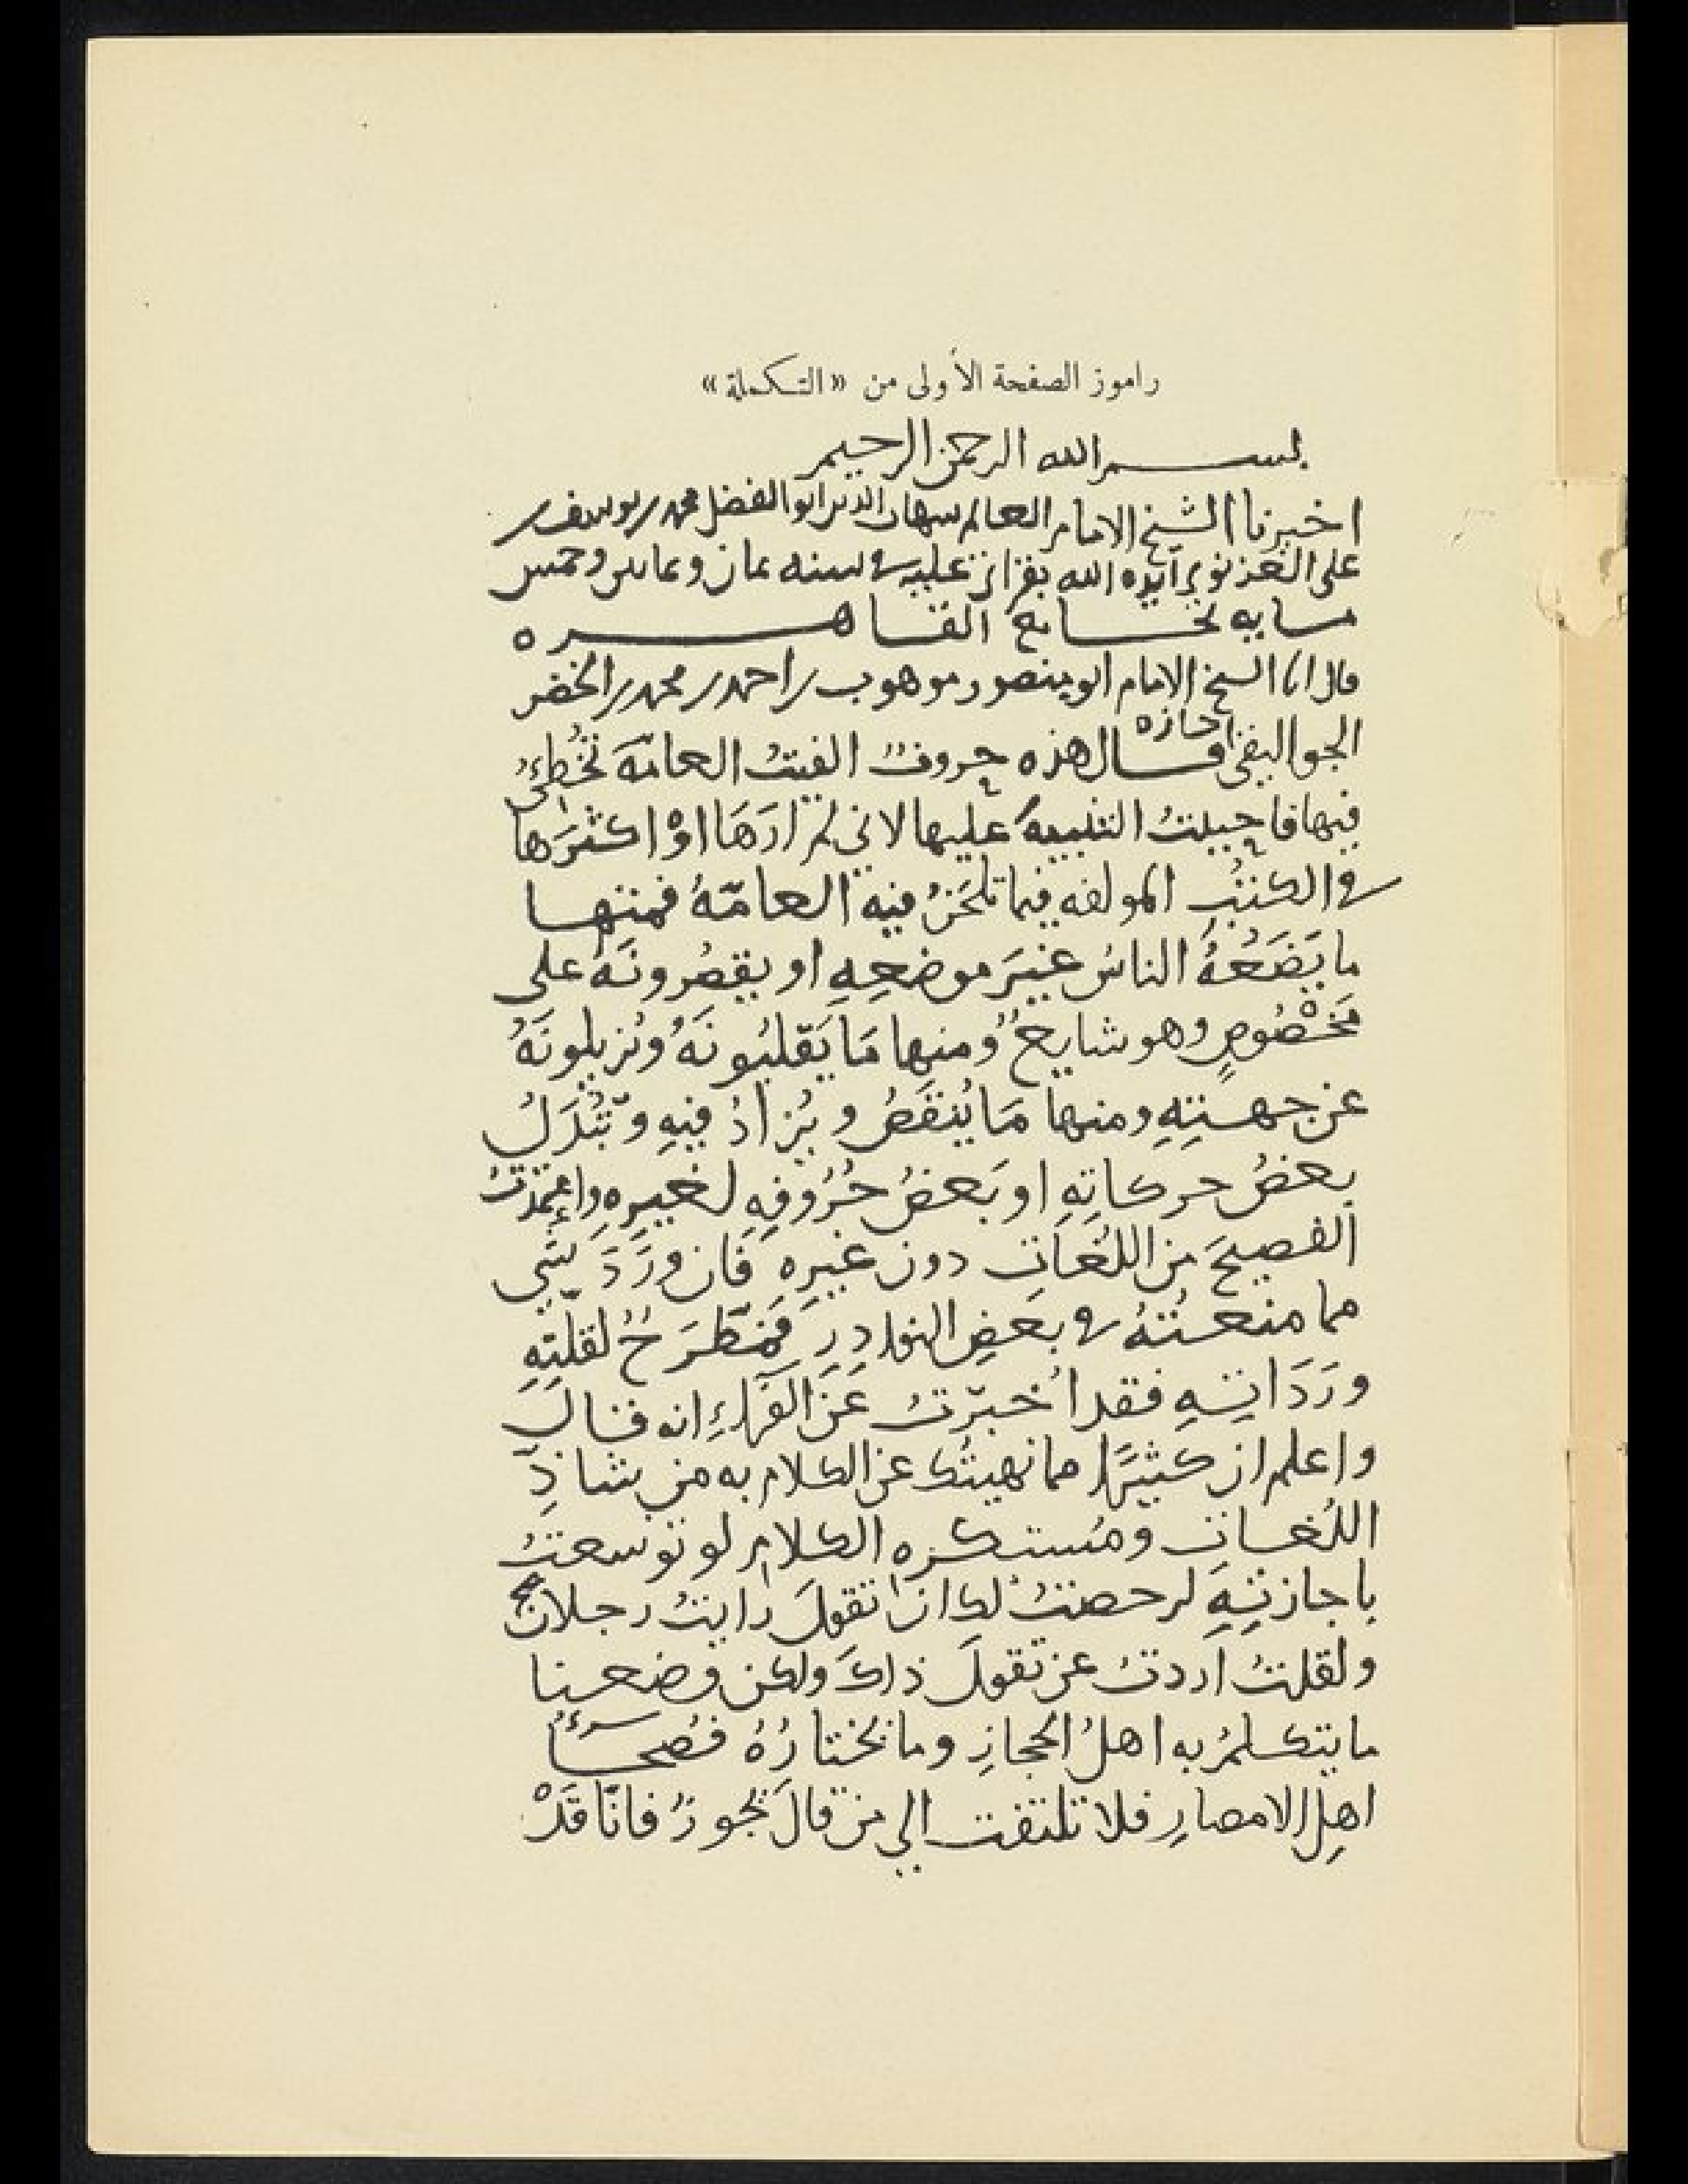 راموز الصفحة الأولى من «التكملة»
بسم الله الرحمن الرحيم
اخبرنا الشيخ الامام العالم شهاب الدين ابو الفضل محمد بن يوسف بن
على الغزنوي آيده الله بقراتي عليه في سنه ثمان وثمانين وخمس
مايه بجامع القاهره
قال انا الشيخ الامام ابو منصور موهوب بن احمد بن محمد بن الخضر
الجواليقي اجازه قال هذه حروفٌ الفيتُ العامّهَ تُخْطِئُ
فيها فاحببتُ التنبيهَ عليها لاني لم ارَهَا اوْ اكثرَها
في الكتُبِ المولفه فيما تلحَنُ فيه العامّهُ فمنها
ما يَضَعُهُ الناسُ غيرَ موضعِهِ او يقصُرونَهُ على
مَخْصُوصٍ وهو شايعٌ ومنها مَا يَقلبُونَهُ ويُزيلونَهُ
عن جهتِهِ ومنها مَا يُنقَصُ ويُزادُ فيهِ وتُبْدَلُ
بعضُ حركاتِهِ او بَعضُ حُرُوفِهِ لغيرِهِ واعتمدْتُ
الفصيحَ من اللُغاتِ دون غيرِهِ فَان وَرَدَ شي
مما منعتُهُ في بعضِ النوادِرِ فمُطَّرَحٌ لقلّتِهِ
ورَدَاتِهِ فقد اُخبرتُ عَنِ الفرّاءِ انه قال
واعلم ان كثيرًا مما نهيتُك عن الكلام به من شاذِّ
اللُغاتِ ومُستكره الكلام لو توسعتُ
باجازتِهِ لرخصتُ لك ان تقولَ رايتُ رجلان
ولقلتُ اردتُ عن تقولَ ذاكَ ولكن وضعنا
ما يتكلمُ به اهلُ الحجازِ وما يختارُهُ فُصحاءُ
اهلِ الامصارِ فلا تلتفت الي من قالَ يجوزُ فانّا قَدْ